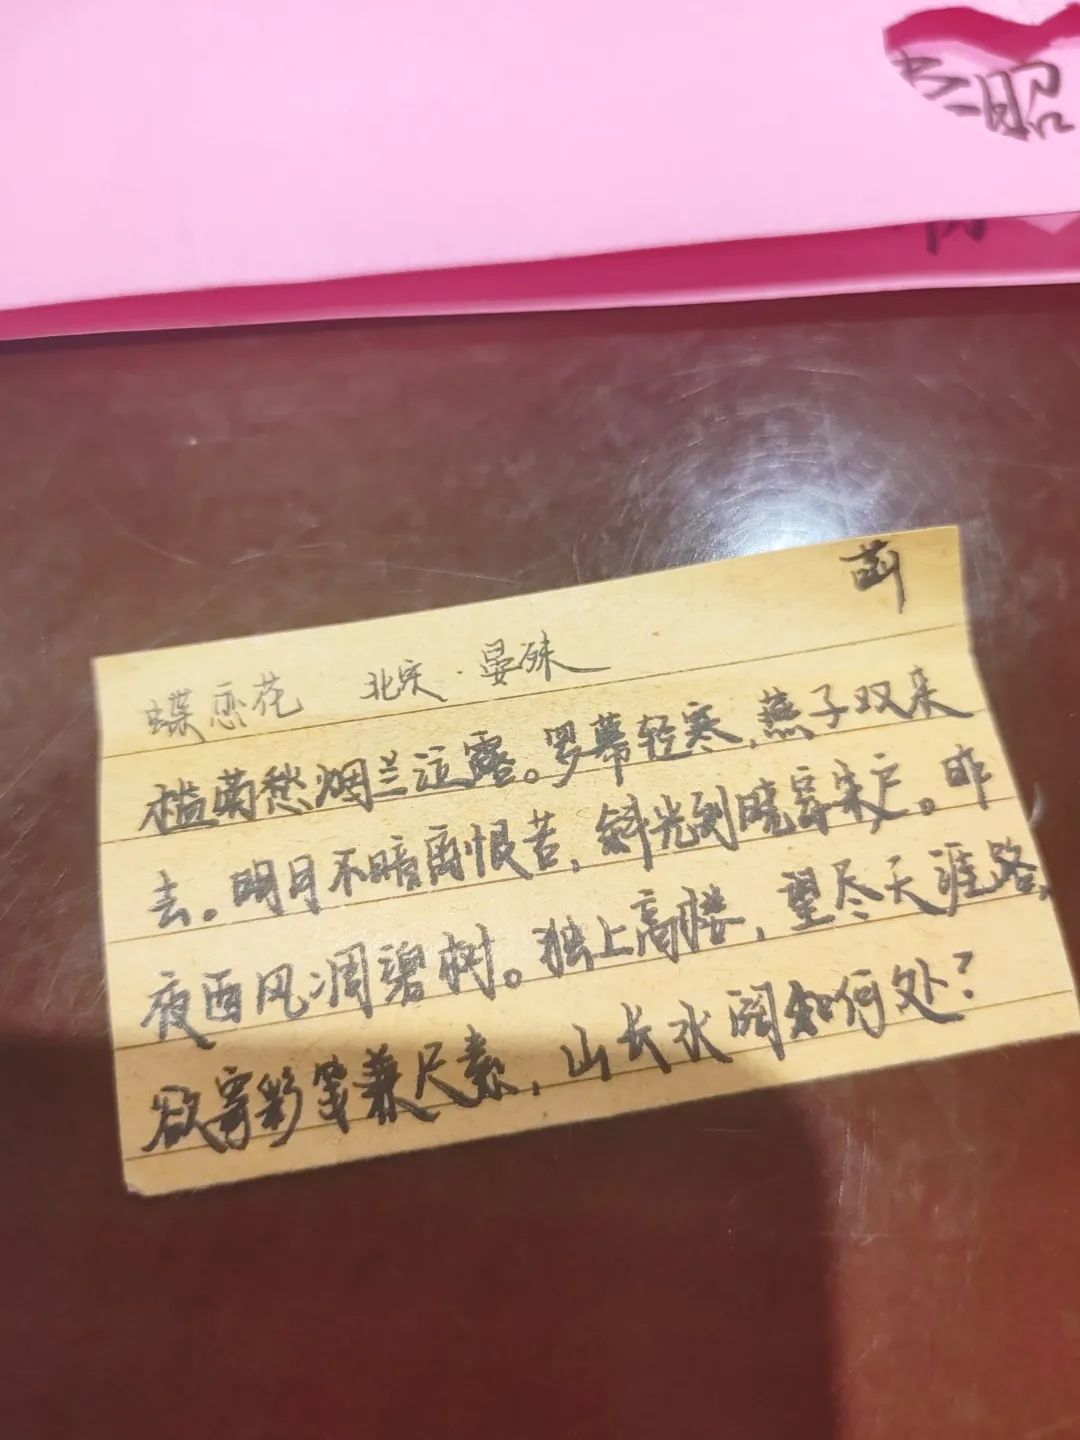 昭
蝶恋花 北宋·晏殊
槛菊愁烟兰泣露。罗幕轻寒,燕子双来
去。明月不暗离恨苦,斜光到晓穿朱户。昨
夜西风凋碧树。独上高楼,望尽天涯路,
欲寄彩笺兼尺素,山长水阔知何处?